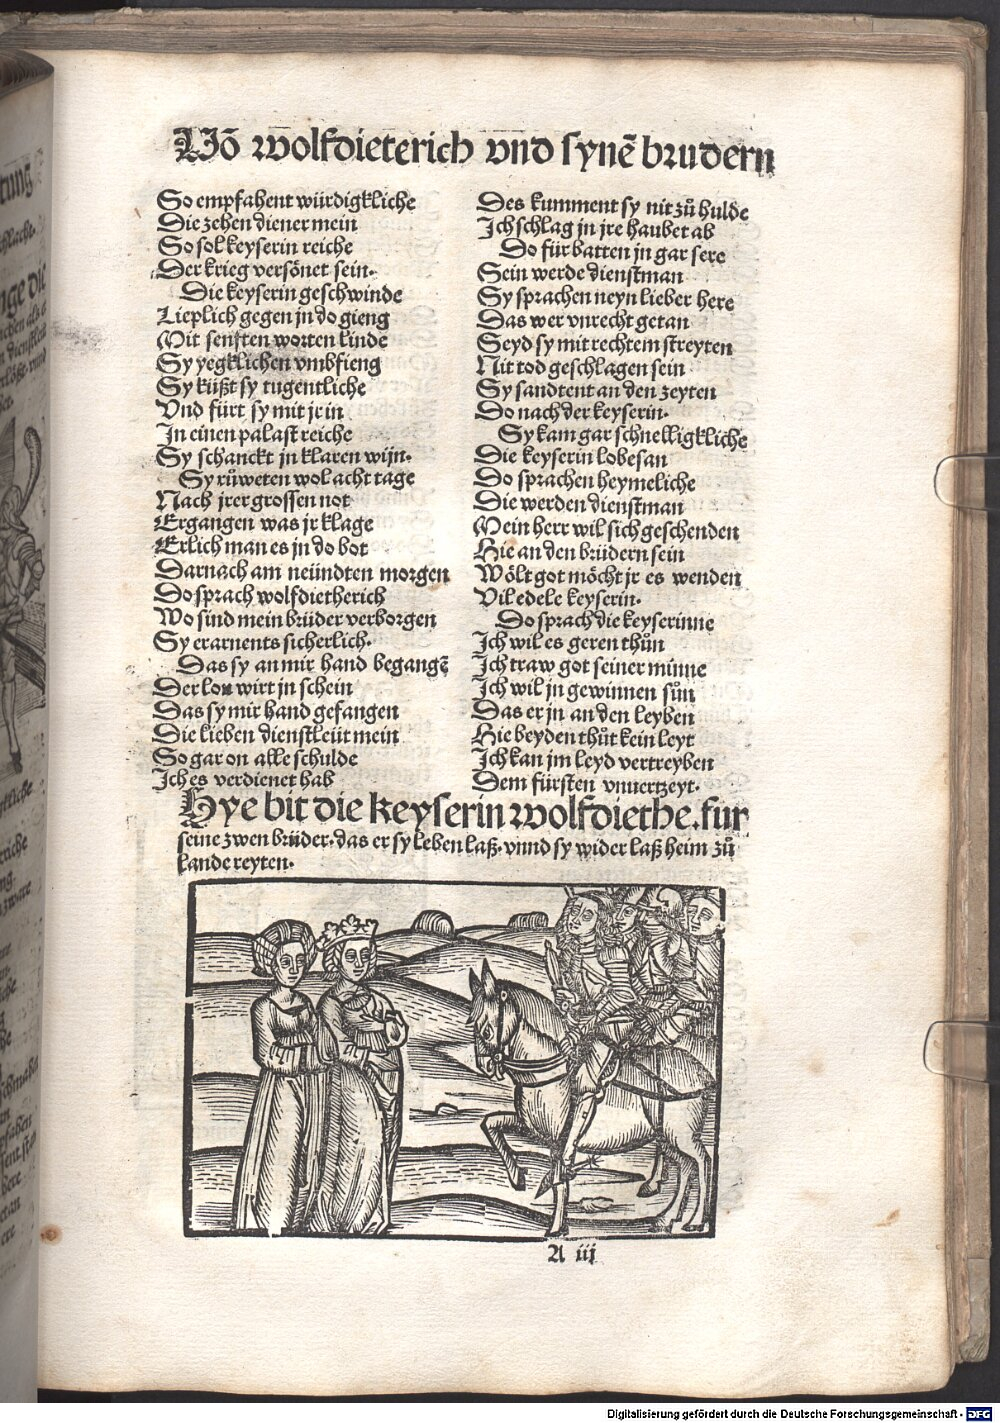 Võ wolfdieterich vnd synẽ brudern
So empfahent würdigkliche
Die zehen diener mein
So sol keyserin reiche
Der krieg versönet sein.
Die keyserin geschwinde
Lieplich gegen jn do gieng
Mit senften worten linde
Sy yegklichen vmbfieng
Sy küßt sy tugentliche
Vnd fürt sy mit jr in
In einen palast reiche
Sy schanckt jn klaren wijn.
Sy růweten wol acht tage
Nach jrer grossen not
Ergangen was jr klage
Erlich man es jn do bot
Darnach am neündten morgen
Do sprach wolfdietherich
Wo sind mein brüder verborgen
Sy erarnents sicherlich.
Das sy an mir hand begangẽ
Der lon wirt jn schein
Das sy mir hand gefangen
Die lieben dienstleüt mein
So gar on alle schulde
Ich es verdienet hab
Des kumment sy nit zů hulde
Ich schlag jn jre haubet ab
Do für batten jn gar sere
Sein werde dienstman
Sy sprachen neyn lieber here
Das wer vnrecht getan
Seyd sy mit rechtem streyten
Nit tod geschlagen sein
Sy sandtent an den zeyten
Do nach der keyserin.
Sy kam gar schnelligkliche
Die keyserin lobesan
Do sprachen heymeliche
Die werden dienstman
Mein herr wil sich geschenden
Hie an den brüdern sein
Wölt got möcht jr es wenden
Vil edele keyserin.
Do sprach die keyserinne
Ich wil es geren thůn
Ich traw got seiner minne
Ich wil jn gewinnen sůn
Das er jn an den leyben
Hie beyden thůt kein leyt
Ich kan jm leyd vertreyben
Dem fürsten vnuertzeyt.
Hye bit die keyserin wolfdiethe. für
seine zwen brüder. das er sy leben laß. vnnd sy wider laß heim zů
lande reyten.
A iij
Digitalisierung gefördert durch die Deutsche Forschungsgemeinschaft - DFG